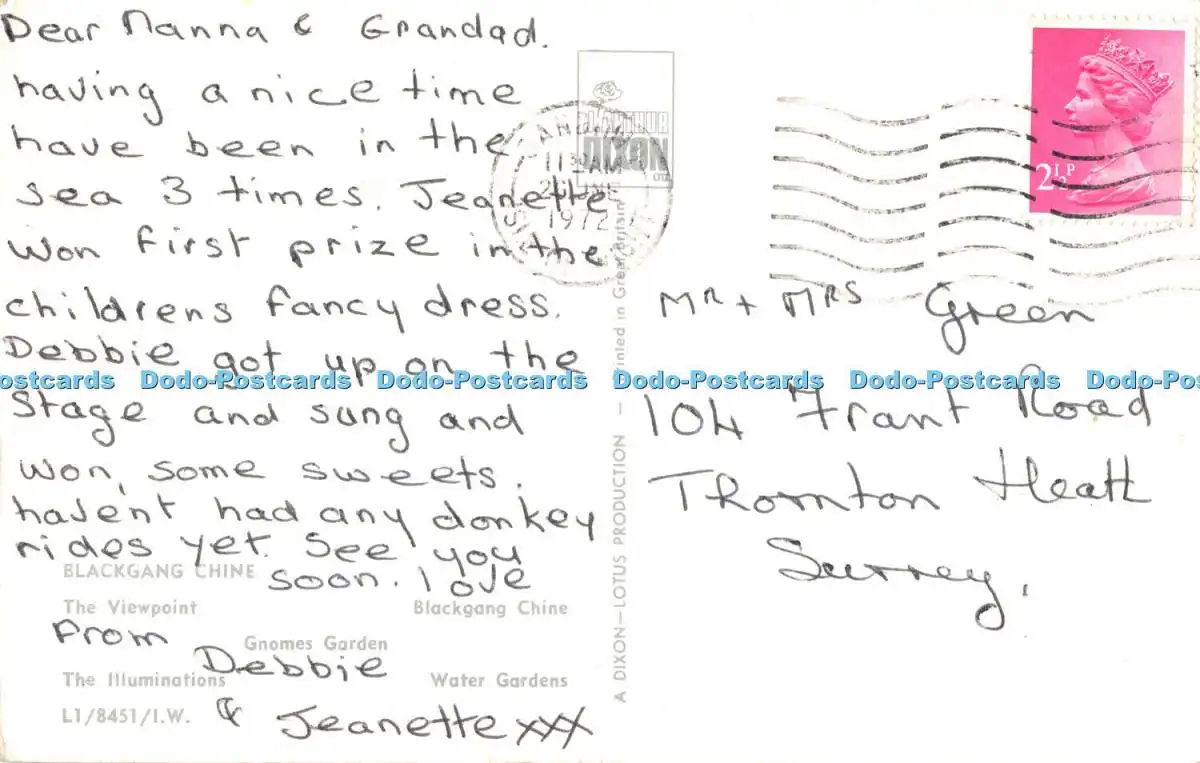 Dear Nanna & Grandad.
having a nice time
have been in the
sea 3 times. Jeanette
won first prize in the
childrens fancy dress.
Debbie got up on the
stage and sung and
won, some sweets.
havent had any donkey
rides yet. See you
soon. love
From
Debbie
& Jeanette xxx
BLACKGANG CHINE
The Viewpoint
Blackgang Chine
Gnomes Garden
The Illuminations
Water Gardens
L1/8451/I.W.
A DIXON–LOTUS PRODUCTION — Printed in Great Britain
ARTHUR
DIXON
LTD
11 30 AM
1972
2½P
Mr + Mrs Green
104 Frant Road
Thornton Heath
Surrey.
ostcards Dodo-Postcards Dodo-Postcards Dodo-Postcards Dodo-Postcards Dodo-Po